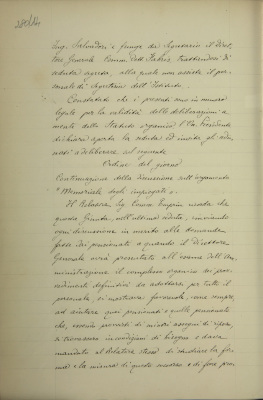 Ing. Salvadori e funge da Segretario il Diret-
tore Generale Comm. Dott. trattandosi di
seduta segreta, alla quale non assiste il per-
sonale di Segreteria dell'Istituto.
Constatato che i presenti sono in numero
legale per la validità delle deliberazioni a
norma dello Statuto organico il Sig. Presidente
dichiara aperta la seduta ed invita gli ade-
renti a deliberare sul seguente
Ordine del giorno
Continuazione della discussione sull'argomento
"Memoriale degli impiegati".
Il Relatore Ing. Comm. ricorda che
questa Giunta, nell'ultima seduta, rinviando
ogni discussione in merito alle domande
fatte dai pensionati a quando il Direttore
Generale avrà presentato all'esame dell'Am-
ministrazione il complesso organico dei prov-
vedimenti definitivi da adottare per tutto il
personale, si mostrava favorevole, come sempre,
ad aiutare quei pensionati e quelle pensionate
che, essendo provvisti di miseri assegni di riposo,
si trovassero in condizioni di bisogno e dava
mandato al Relatore stesso di studiare la for-
ma e la misura di questo e di fare pro-